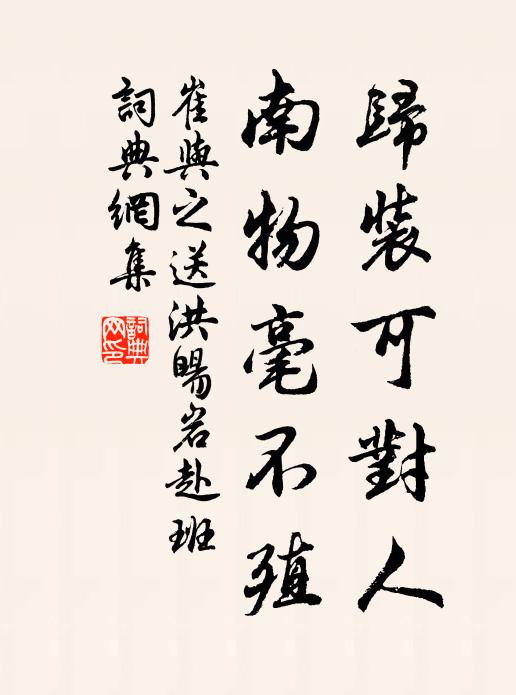 歸裝可對人
南物毫不殖
崔與之送洪賜岩赴班
詞典網集
詞典網印